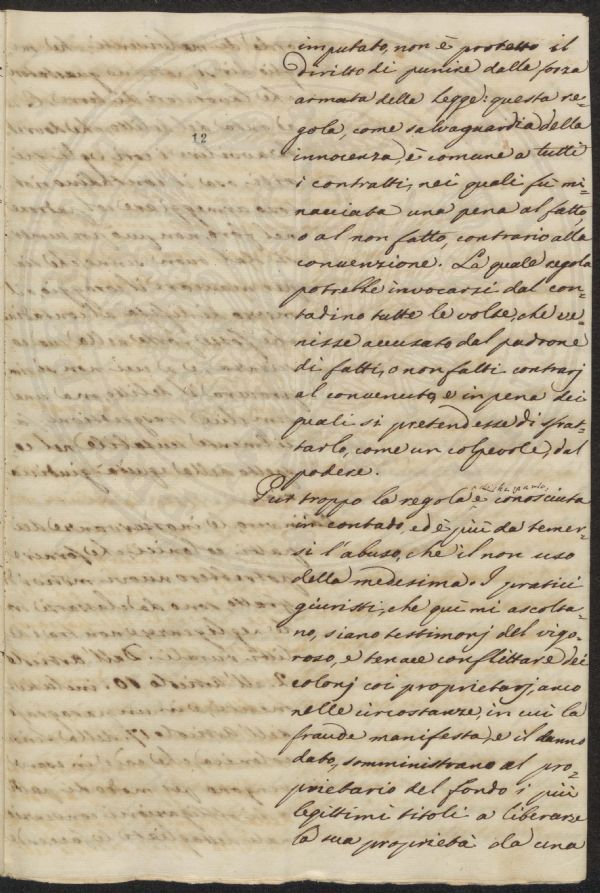 12
imputato, non è protetto il
diritto di punire dalla forza
armata della legge: questa re=
gola, come salvaguardia della
innocenza, è comune a tutti
i contratti, nei quali fu mi=
nacciata una pena al fatto,
o al non fatto, contrario alla
convenzione. La quale regola
potrebbe invocarsi dal con=
tadino tutte le volte, che ve=
nisse accusato dal padrone
di fatti, o non fatti contrarj
al convenuto, e in pena dei
quali si pretendesse di sfrat=
tarlo, come un colpevole, dal
podere.
Pur troppo la regola è conosciuta
in contado, ed è più da temer=
si l'abuso, che il non uso
della medesima. I pratici
giuristi, che quì mi ascolta=
no, siano testimonj del vigo=
roso, e tenace conflittare dei
colonj coi proprietarj, anco
nelle circostanze, in cui la
fraude manifesta, e il danno
dato, somministrano al pro=
prietario del fondo i più
legittimi titoli a liberare
la sua proprietà da una